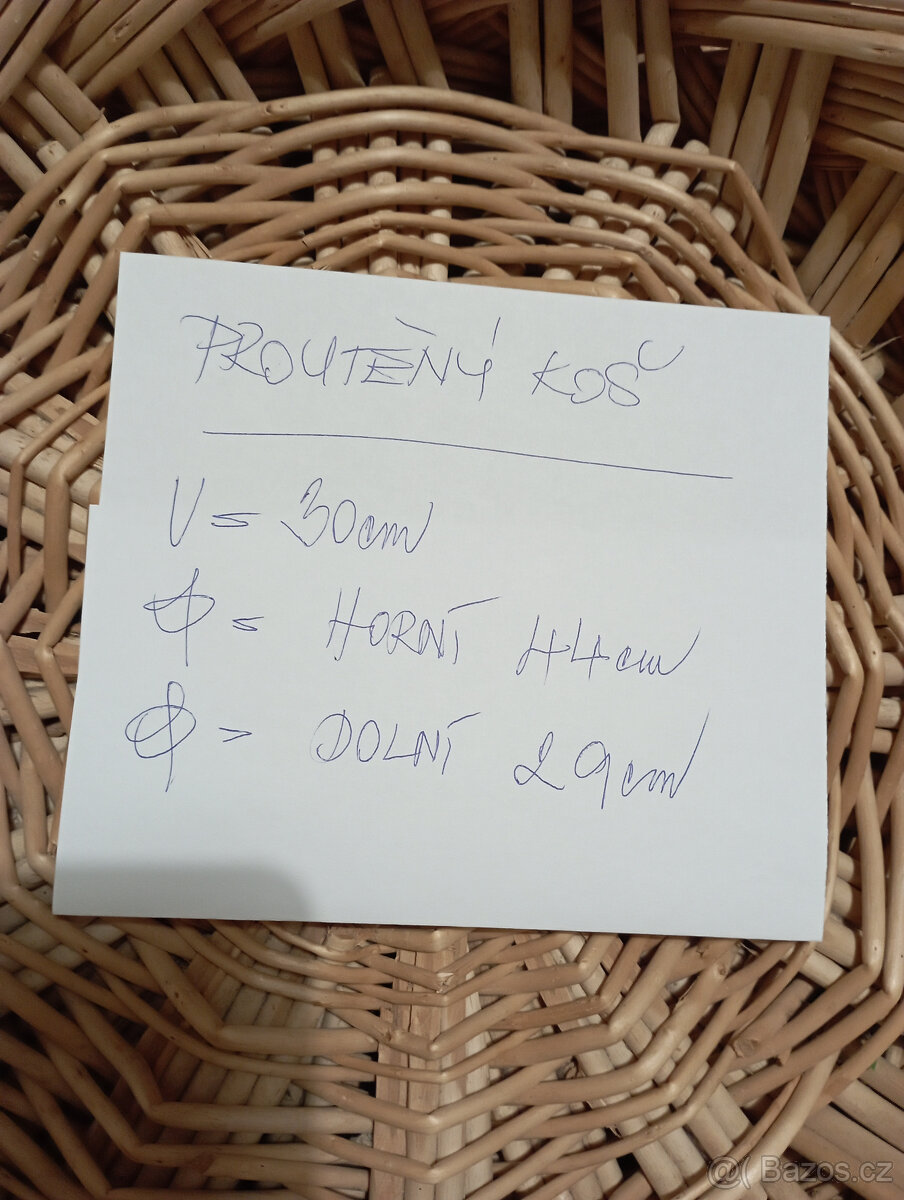 PROUTĚNÝ KOŠ
V = 30cm
ϕ = HORNÍ 44cm
ϕ = DOLNÍ 29cm
@( Bazos.cz